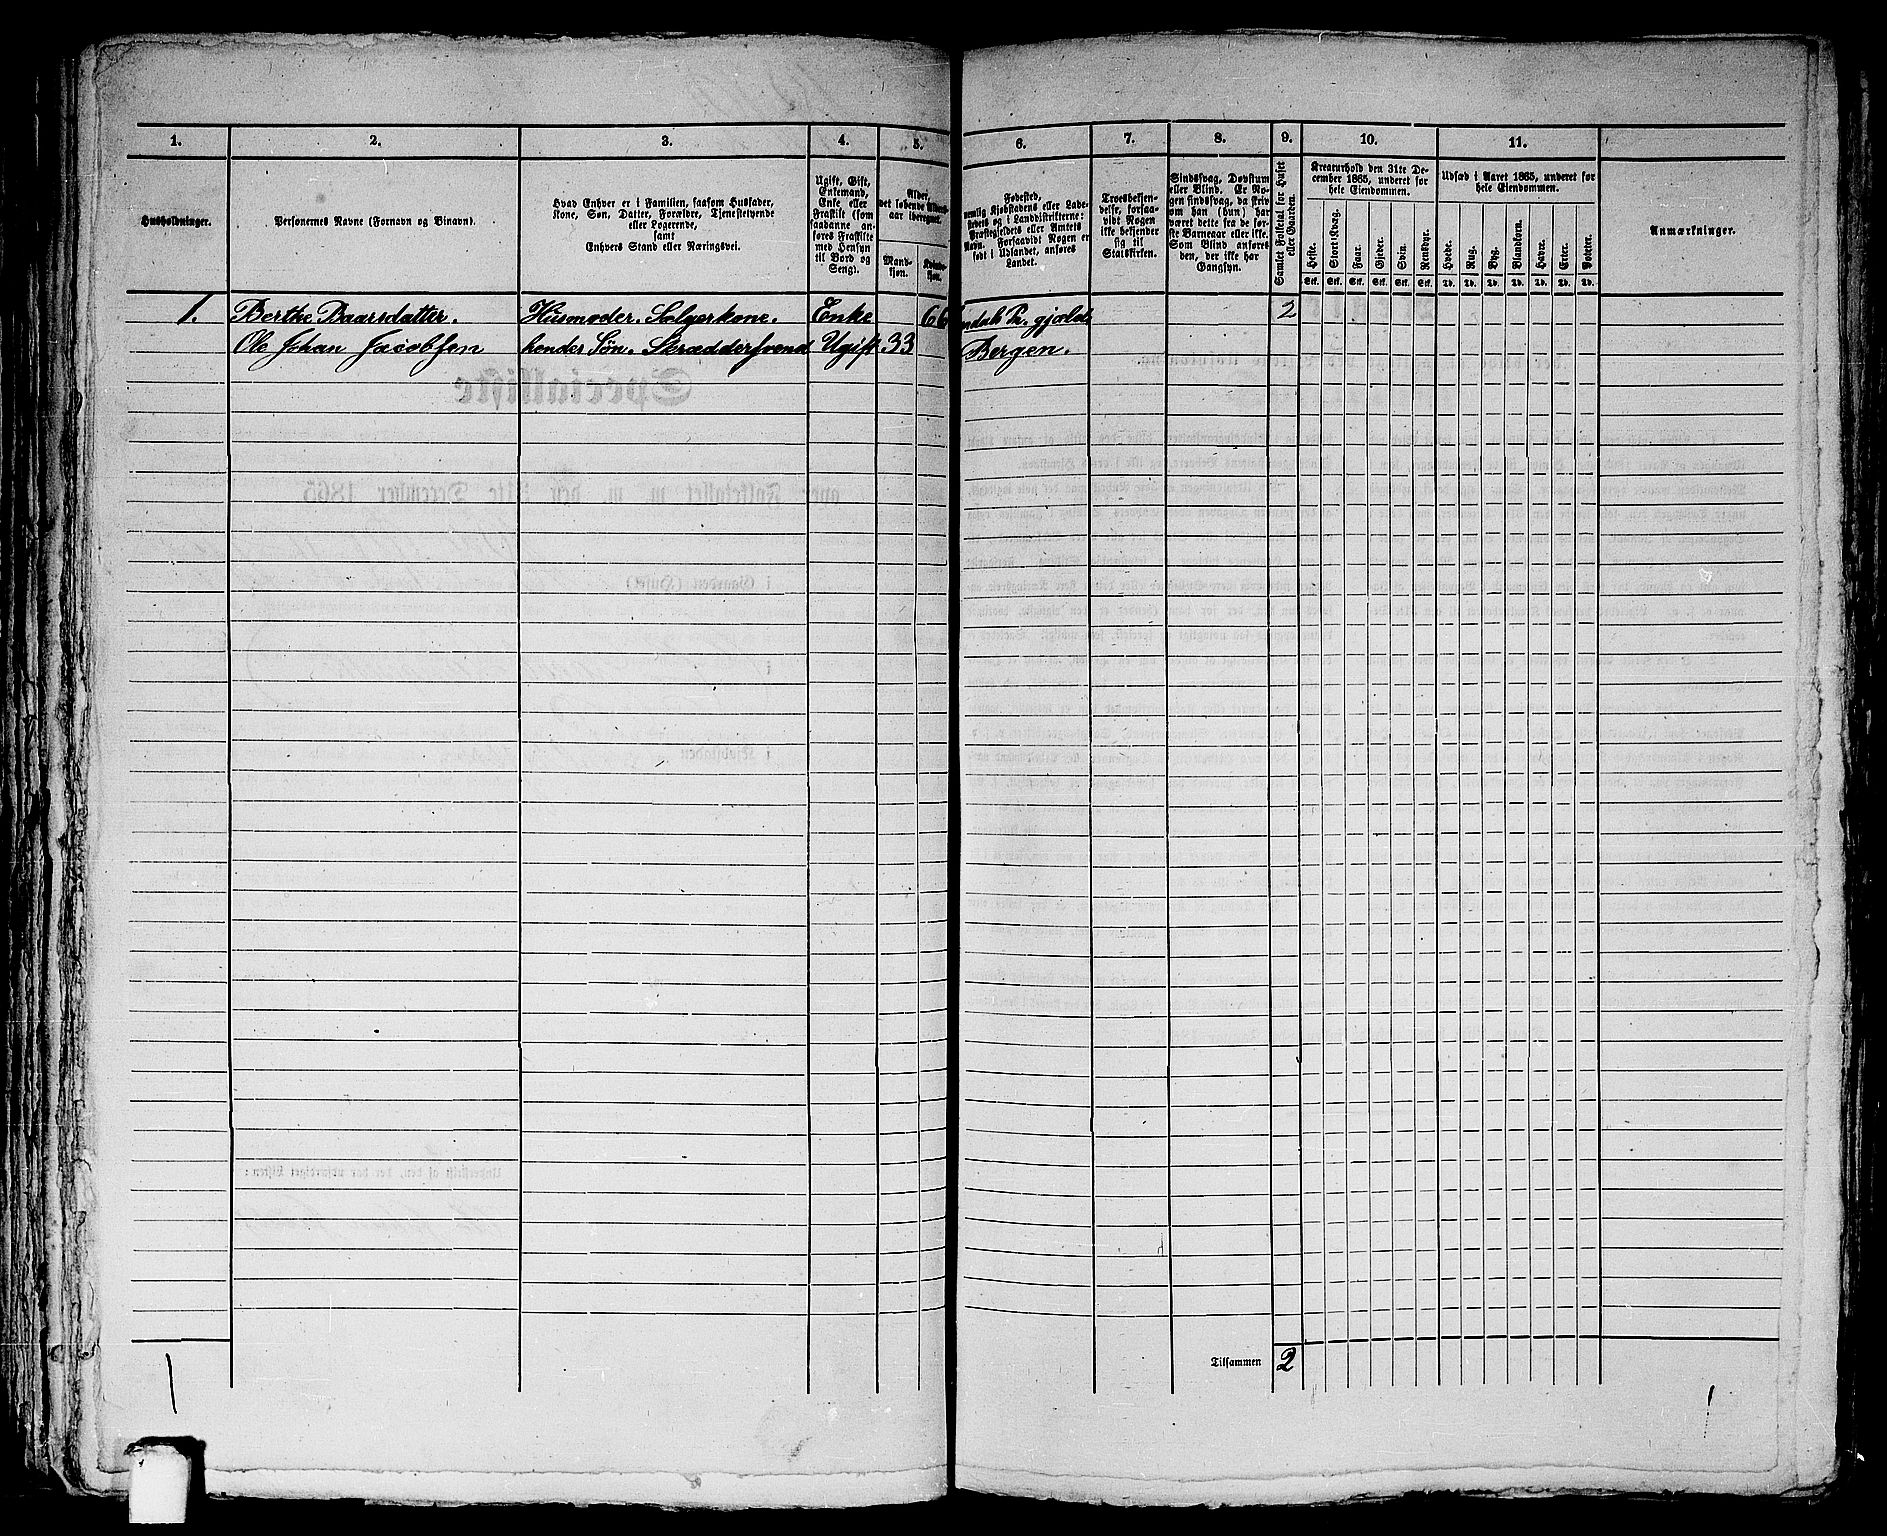 1. 2. 3. 4. 5. 6. 7. 8. 9. 10. 11.
Husholdninger.
Personernes Navne (Fornavn og Binavn).
Hvad Enhver er i Familien, saasom Husfader,
Kone, Søn, Datter, Forældre, Tjenestetyende
eller Logerende,
samt
Enhvers Stand eller Næringsvei.
Ugift, Gift,
Enkemand,
Enke eller
Fraskilt (som
saadanne an-
føres Fraskilte
med Hensyn
til Bord og
Seng).
Alder,
det løbende
aar iberegnet.
Mand-
kjøn.
Kvinde-
kjøn.
Fødested,
nemlig Kjøbstadens eller Lade-
stedets og i Landdistrikterne:
Præstegjeldets eller Amtets
Navn. Forsaavidt Nogen er
født i Udlandet, anføres
Landet.
Troesbekjen-
delse, forsaa-
vidt Nogen
ikke bekjender
sig til
Statskirken.
Sindssvag, Døvstum
eller Blind. Er No-
gen sindssvag, da skriv
om han (hun) har
været dette fra de før-
ste Barneaar eller ikke.
Som Blind anføres
den, der ikke har
Gangsyn.
Samlet Folketal for Huset
eller Gaarden.
Kreaturhold den 31te De-
cember 1865, underet for
hele Eiendommen.
Heste. Stort Kvæg. Faar. Gjeder. Sviin. Rensdyr.
Stk. Stk. Stk. Stk. Stk. Stk.
Udsæd i Aaret 1865, underet for
hele Eiendommen.
Hvede. Rug. Byg. Blandkorn. Havre. Erter. Poteter.
Td. Td. Td. Td. Td. Td. Td.
Anmærkninger.
1. Berthe Baarsdatter. Husmoder. Sælgerkone. Enke 66 Pr. gjæld 2
Ole Johan Jacobsen hendes Søn. Skræddersvend Ugift 33 Bergen.
Tilsammen 2